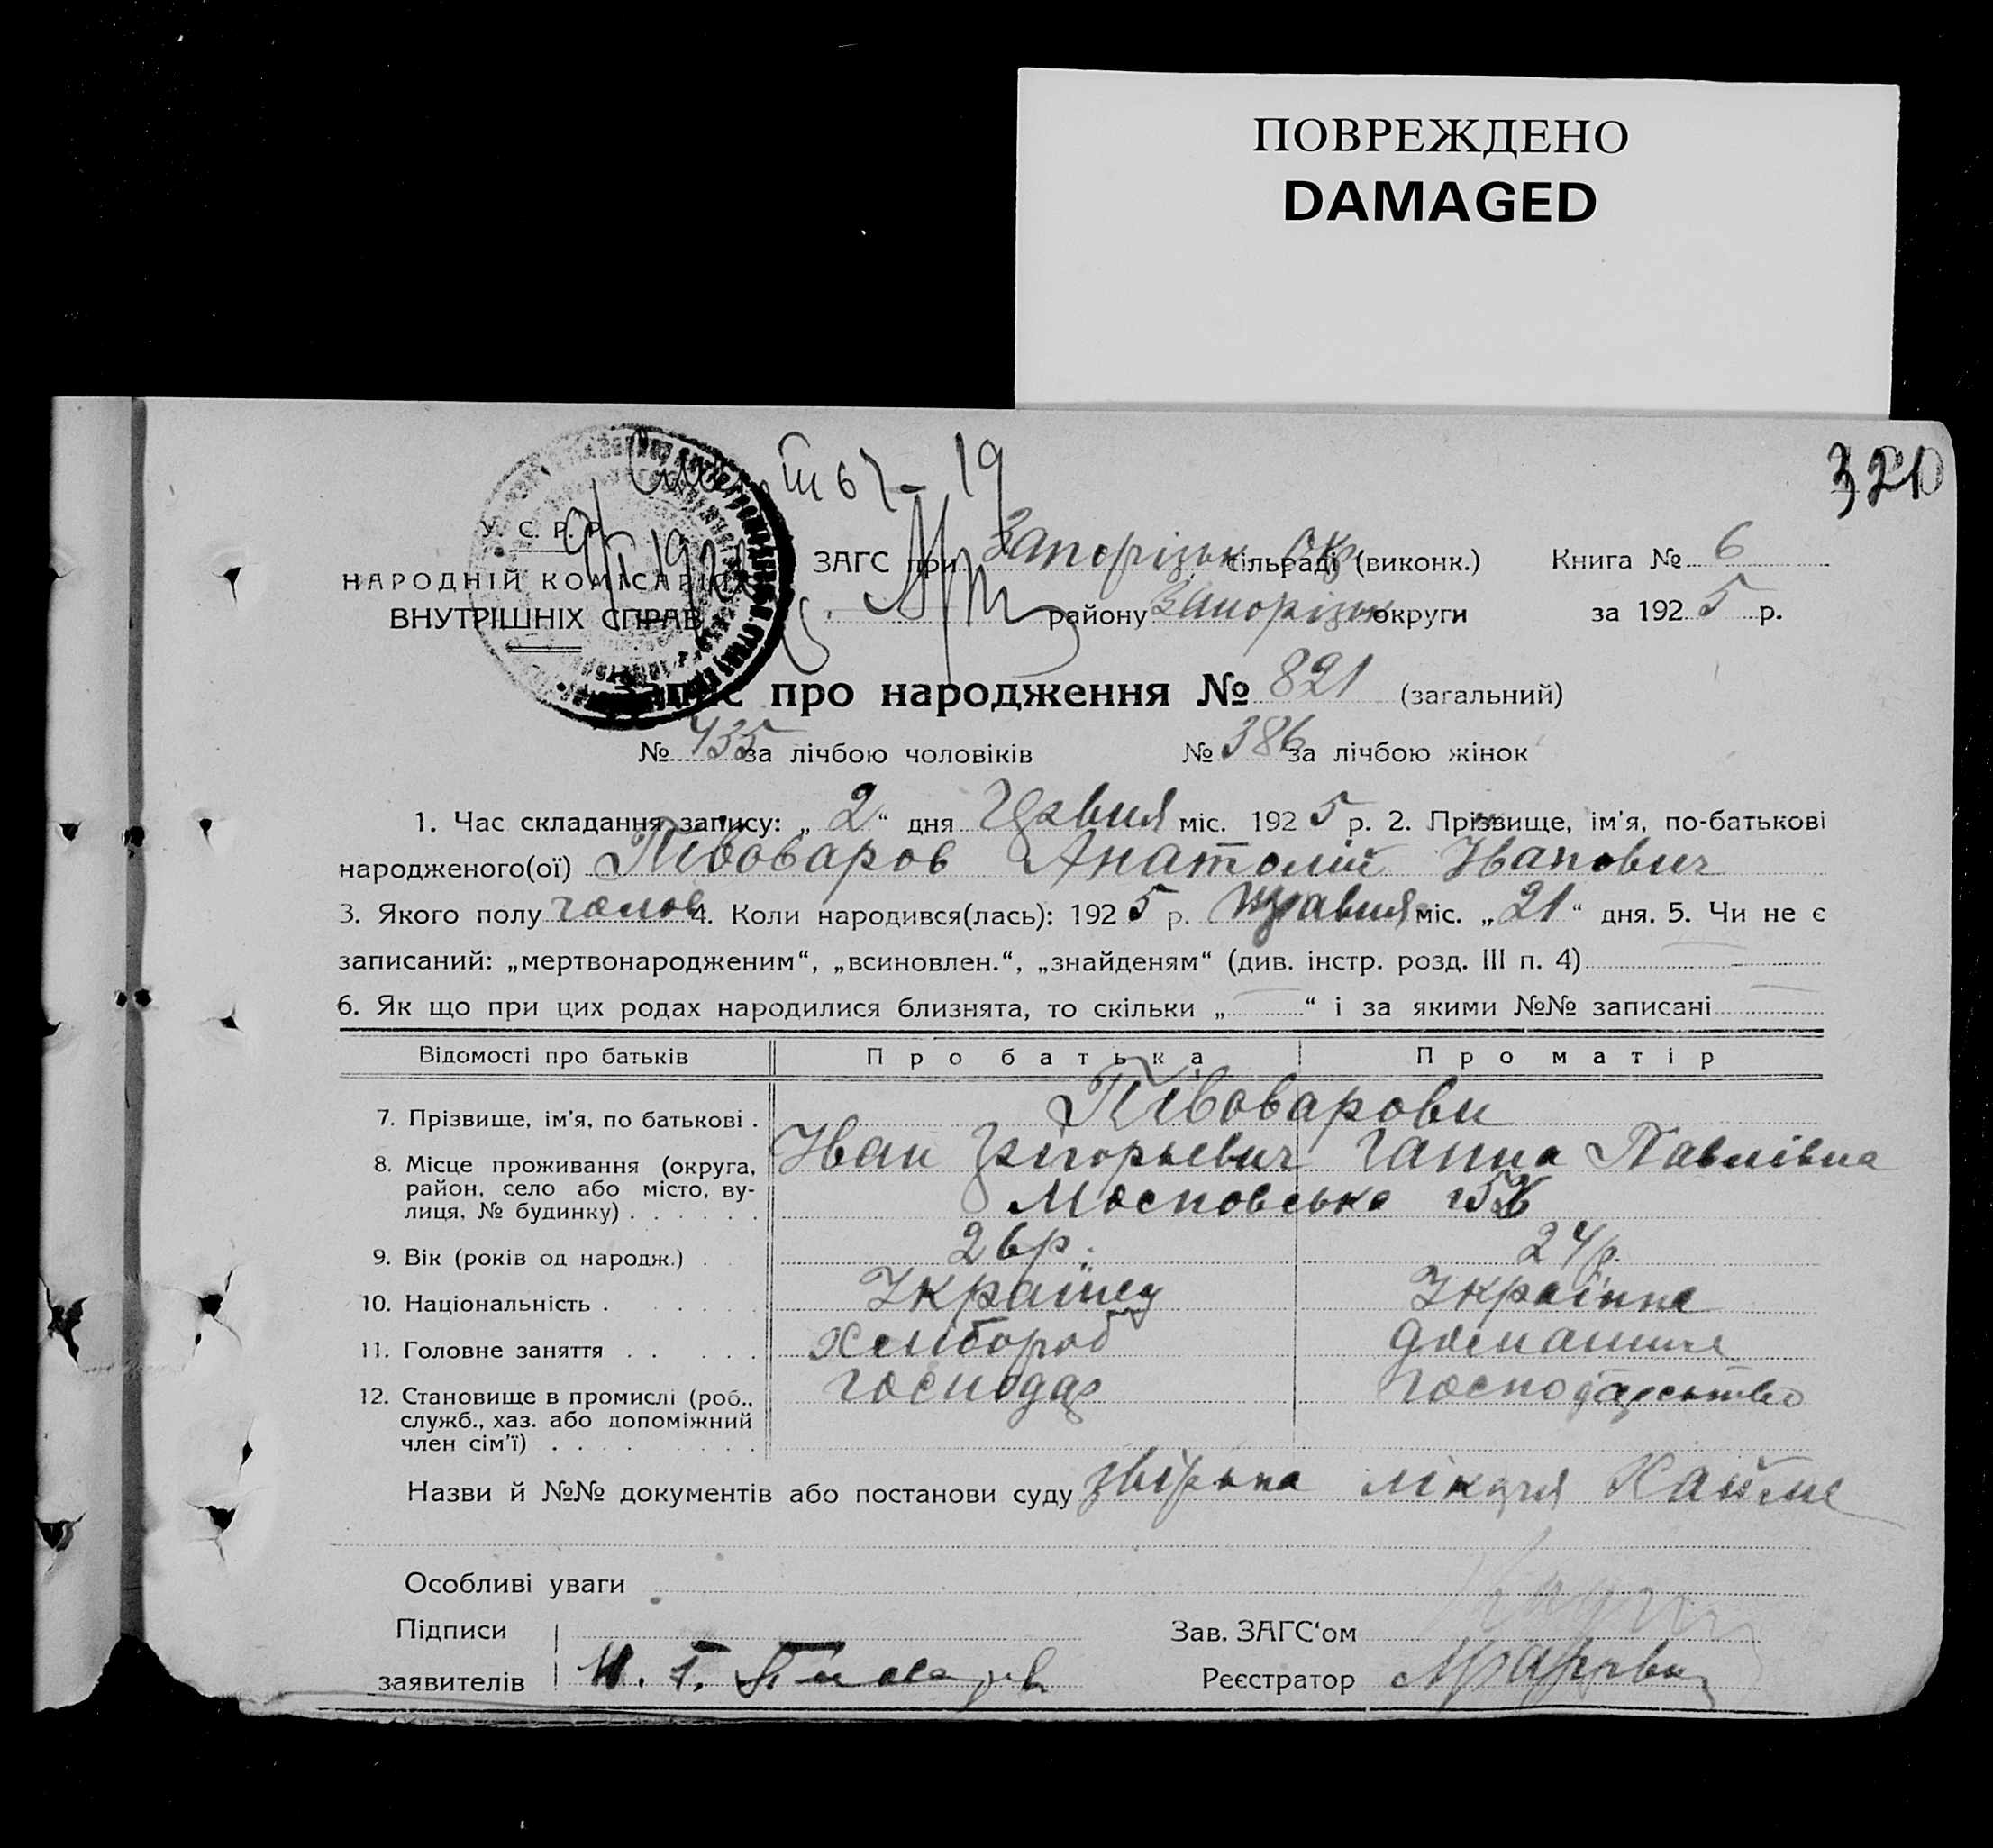 ПОВРЕЖДЕНО
DAMAGED
320
У. С. Р. Р.
НАРОДНІЙ КОМІСАРІЯТ
ВНУТРІШНІХ СПРАВ
ЗАГС при Запорізьк Окр сільраді (виконк.) Книга № 6
району Запорізьк округи за 1925 р.
Запис про народження № 821 (загальний)
№ 435 за лічбою чоловіків № 386 за лічбою жінок
1. Час складання запису: „ 2 “ дня Червня міс. 1925 р. 2. Прізвище, ім’я, по-батькові
народженого(ої) Півоваров Анатолій Іванович
3. Якого полу чолов 4. Коли народився(лась): 1925 р. травня міс. „ 21 “ дня. 5. Чи не є
записаний: „мертвонародженим“, „всиновлен.“, „знайденям“ (див. інстр. розд. III п. 4)
6. Як що при цих родах народилися близнята, то скільки „ “ і за якими №№ записані
Відомості про батьків Про батька Про матір
Півоварови
7. Прізвище, ім’я, по батькові . Іван Грігорьевич Ганна Павлівна
8. Місце проживання (округа, район, село або місто, вулиця, № будинку) . Московська
9. Вік (років од народж.) . . 26 р. 24 р.
10. Національність . Українец Українка
11. Головне заняття . . Хлибороб домашнє
12. Становище в промислі (роб., служб., хаз. або допоміжний член сім’ї) . господар господарство
Назви й №№ документів або постанови суду лікаря
Особливі уваги
Підписи
заявителів И. Г.
Зав. ЗАГС‘ом
Реєстратор